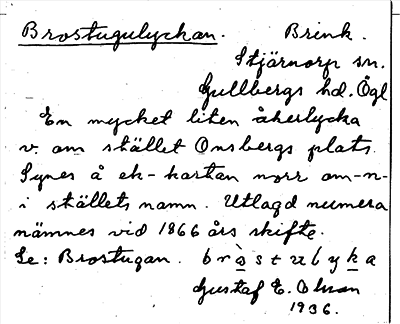 Brostugulyckan. Brink.
Stjärnorp sn.
Gullbergs hd. Ögl
En mycket liten åkerlycka
v. om stället Onsbergs plats.
Synes å ek-kartan norr om -n-
i ställets namn. Utlagd numera
nämnes vid 1866 års skifte.
Se: Brostugan. bròstubyka
Gustaf E. Olsson
1936.